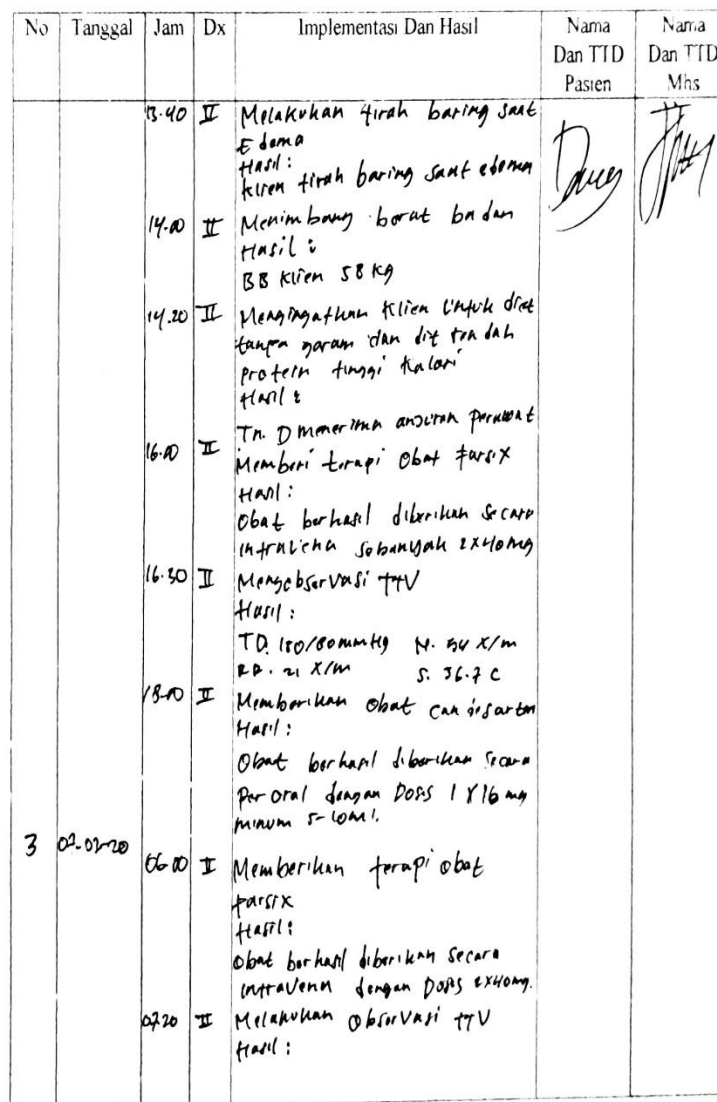 No Tanggal Jam Dx Implementasi Dan Hasil Nama Dan TTD Pasien Nama Dan TTD Mhs
13.40 II Melakukan tirah baring saat
Edema
Hasil:
Klien tirah baring saat edema
14.00 II Menimbang berat badan
Hasil:
BB Klien 58 kg
14.20 II Mengingatkan Klien Untuk diet
tanpa garam dan dit rendah
protein tinggi Kalori
Hasil:
Tn. D menerima anjuran perawat
16.00 II Memberi terapi Obat Farsix
Hasil:
Obat berhasil diberikan Secara
intravena sebanyak 2x40mg
16.30 II Mengobservasi TTV
Hasil:
TD. 180/80mmHg N. 54 X/m
RR. 21 X/m S. 36.7 C
18.00 II Memberikan Obat candesartan
Hasil:
Obat berhasil diberikan Secara
Per oral dengan Dosis 1 X 16 mg
minum 5-10ml.
3 02-02-20
06.00 II Memberikan terapi obat
farsix
Hasil:
Obat berhasil diberikan Secara
intravena dengan Dosis 2x40mg.
07.20 II Melakukan Observasi TTV
Hasil: